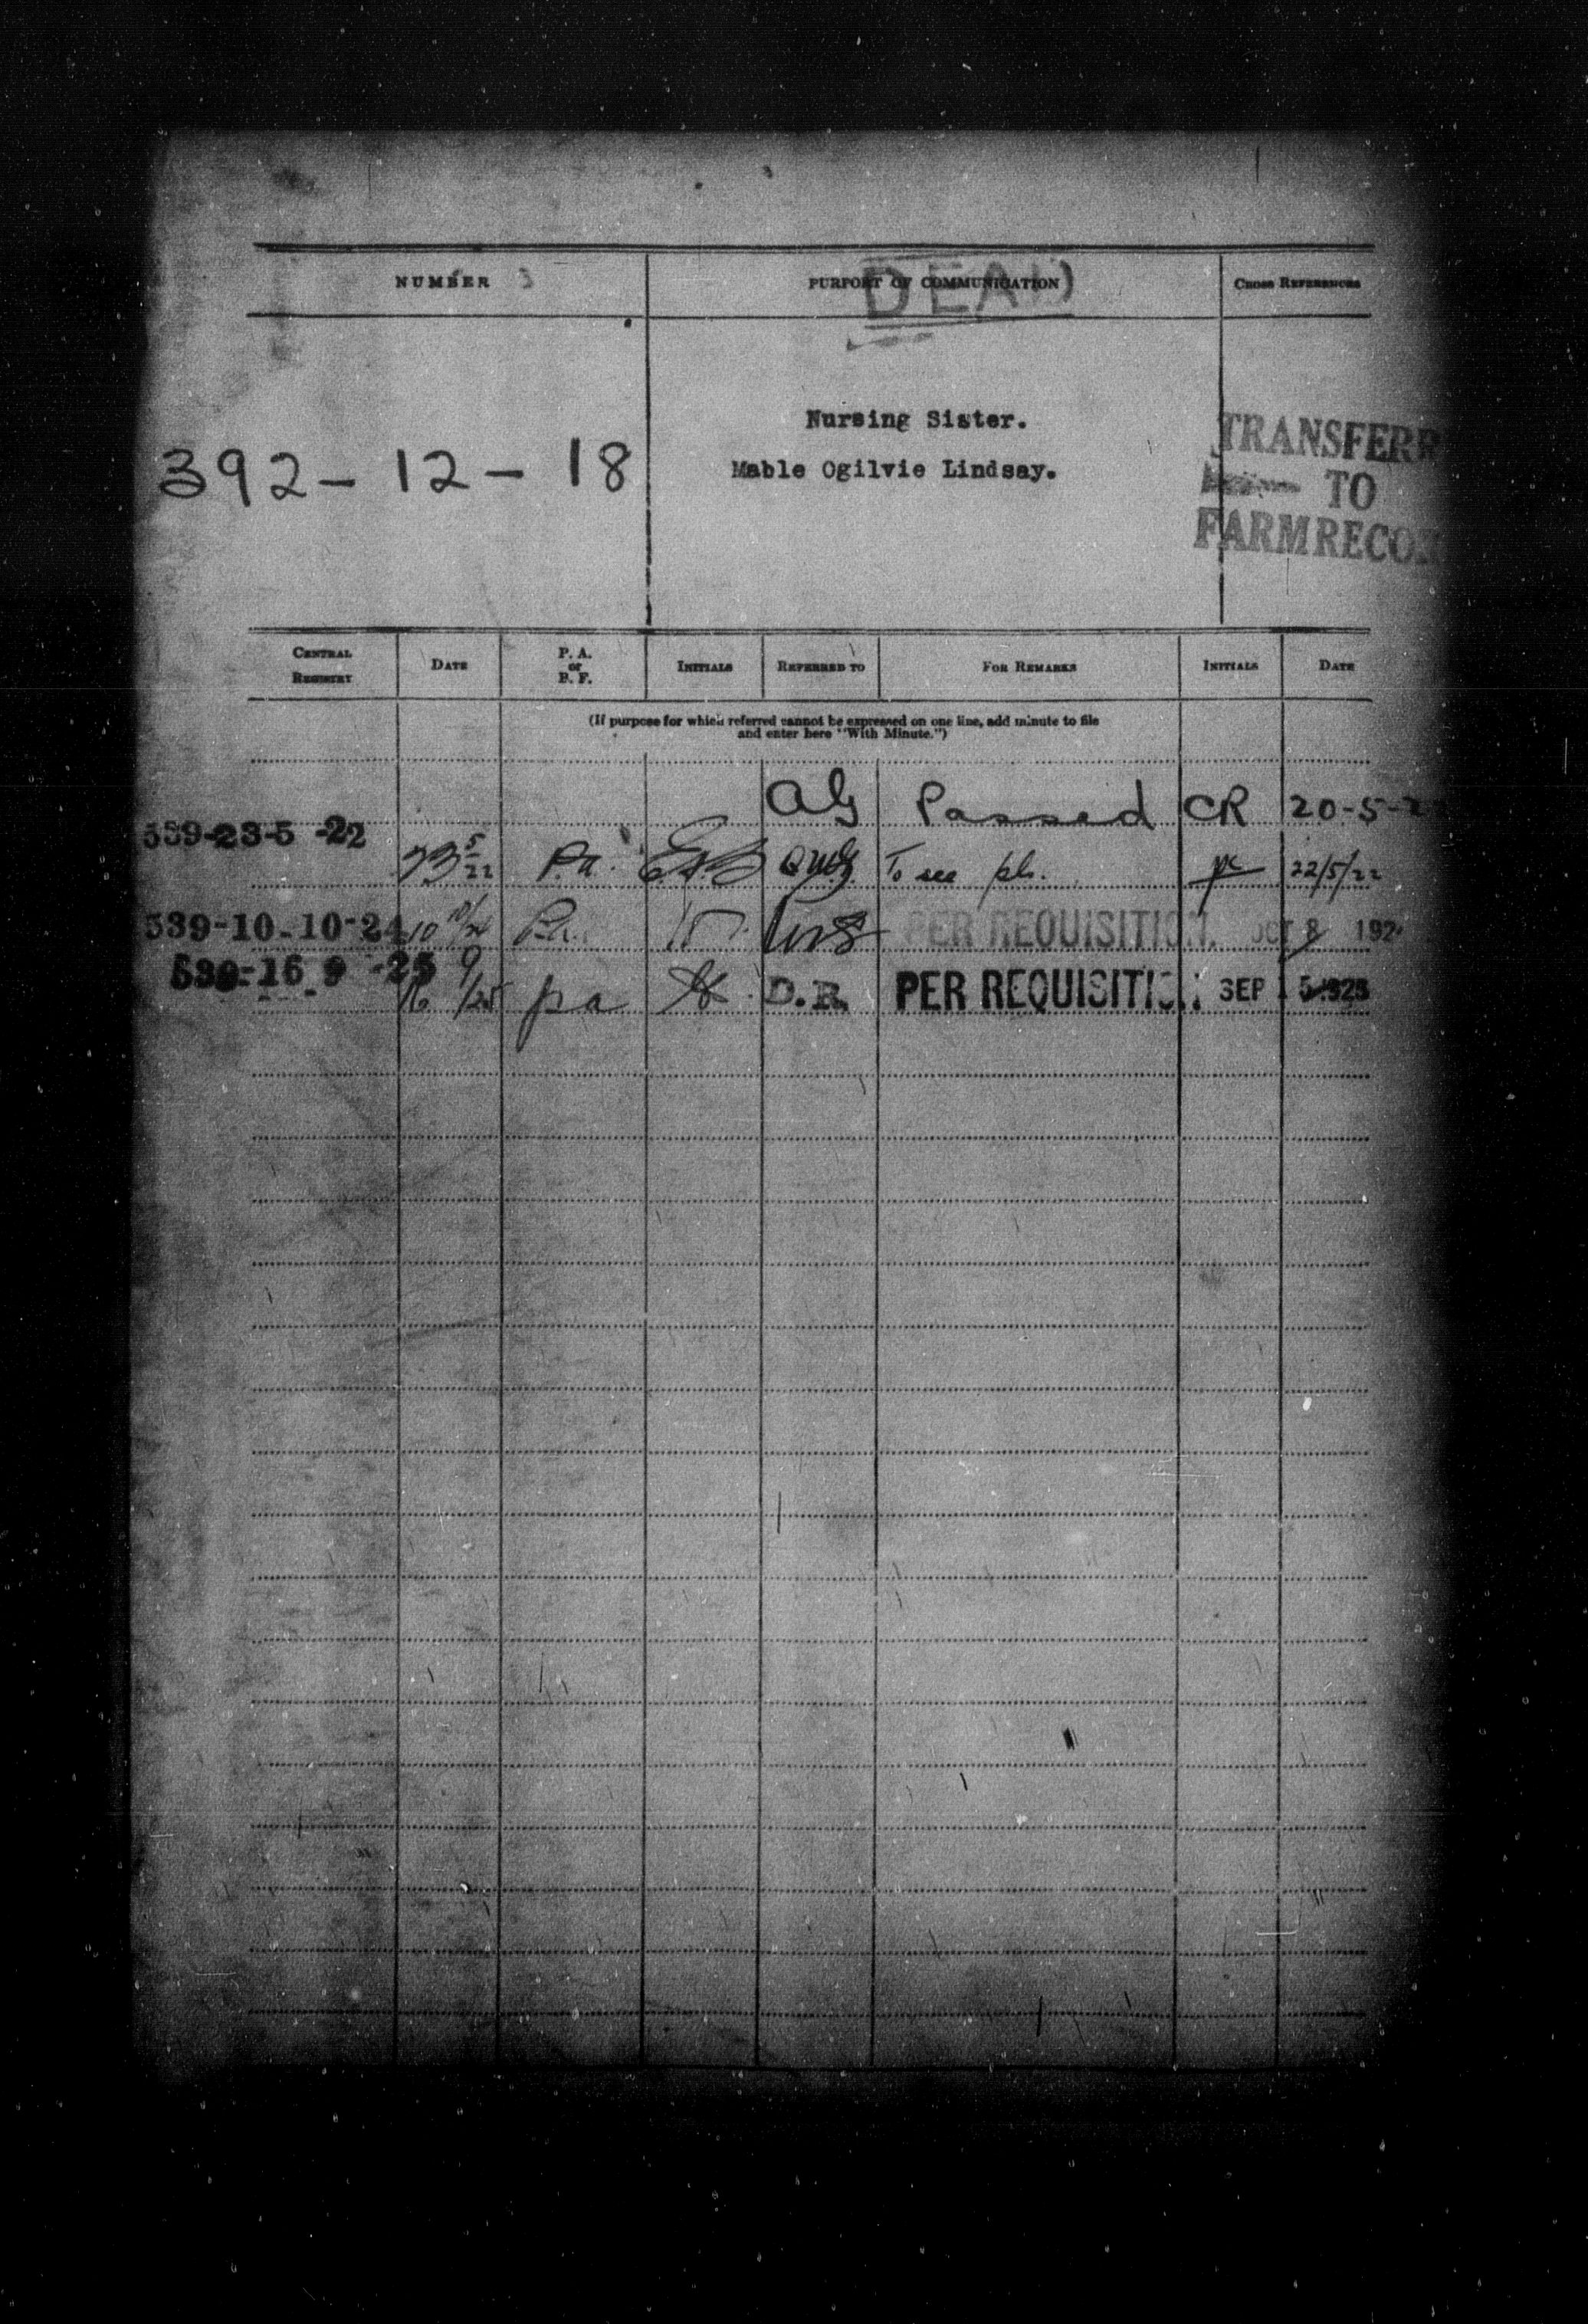 DEAD
NUMBER PURPORT OF COMMUNICATION CROSS REFERENCES
Nursing Sister.
392-12-18 Mable Ogilvie Lindsay.
TRANSFERR
TO
FARM RECO
CENTRAL REGISTRY DATE P. A. or B. F. INITIALS REFERRED TO FOR REMARKS INITIALS DATE
(If purpose for which referred cannot be expressed on one line, add minute to file
and enter here "With Minute.")
AG Passed CR 20-5-2
539-23-5-22 23 5/22 P.A. To see pl. 22/5/22
539-10-10-24 10 10/24 P.A. PER REQUISITION. OCT 8 192
539-16 9-25 16 9/25 pa D.R. PER REQUISITION SEP 5 1925